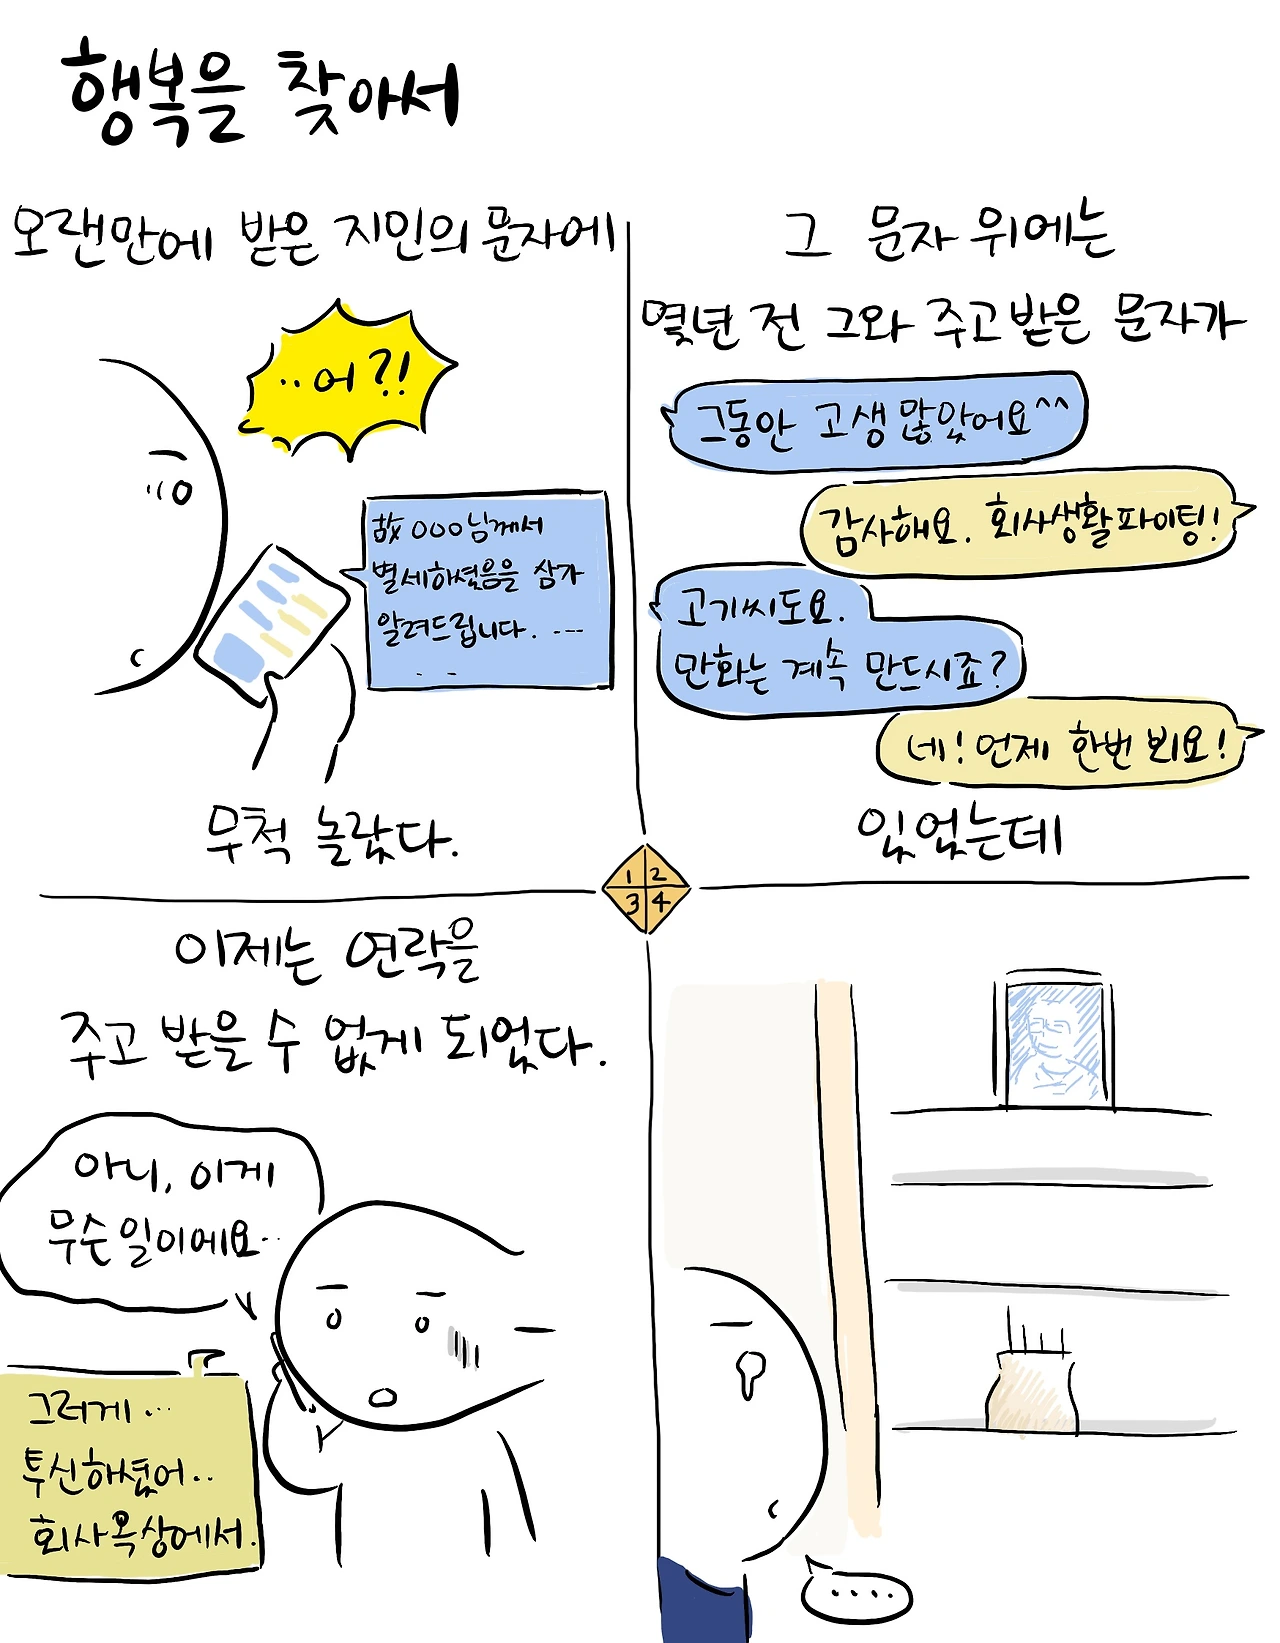 행복을 찾아서
오랜만에 받은 지인의 문자에
..어?!
故 OOO님께서
별세하셨음을 삼가
알려드립니다. ...
. .
무척 놀랐다.
그 문자 위에는
몇년 전 그와 주고받은 문자가
그동안 고생 많았어요^^
감사해요. 회사생활파이팅!
고기씨도요.
만화는 계속 만드시죠?
네! 언제 한번 뵈요!
있었는데
1 2
3 4
이제는 연락을
주고 받을 수 없게 되었다.
아니, 이게
무슨일이에요..
그러게...
투신하셨어..
회사옥상에서.
....